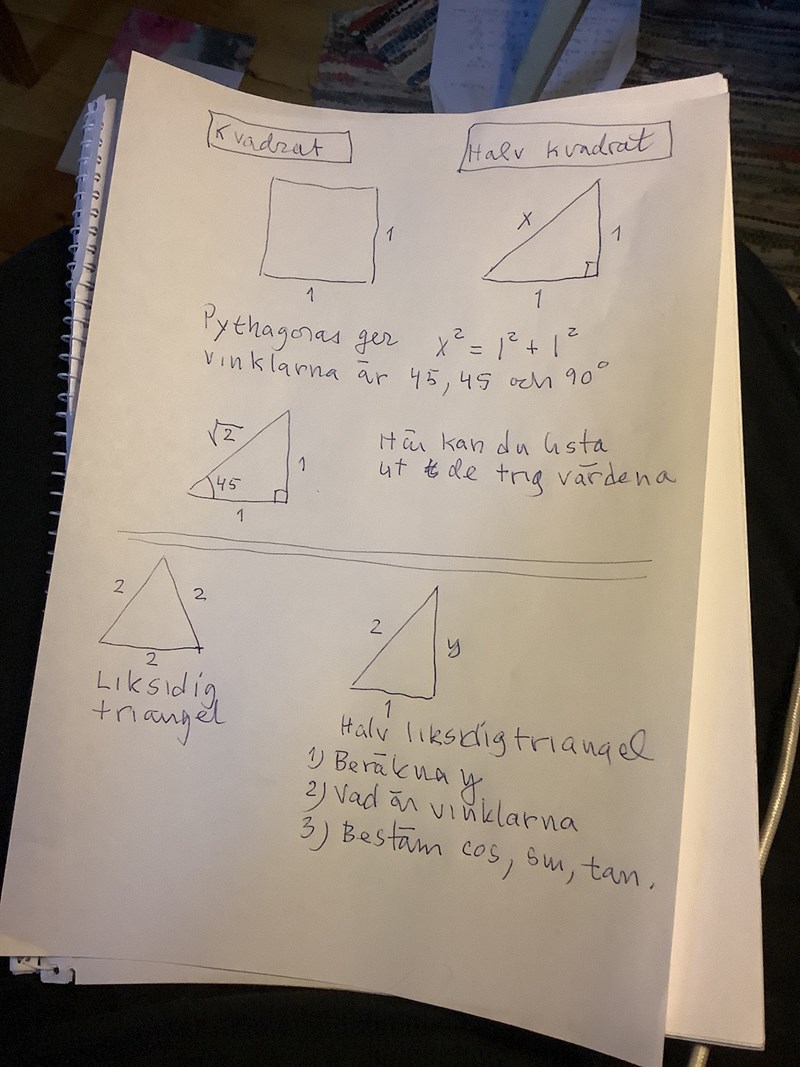 Kvadrat
Halv kvadrat
1
1
x
1
1
Pythagoras ger x² = 1² + 1²
vinklarna är 45, 45 och 90°
√2
45
1
1
Här kan du lista
ut de trig värdena
2
2
2
Liksidig
triangel
2
y
1
Halv liksidig triangel
1) Beräkna y
2) Vad är vinklarna
3) Bestäm cos, sin, tan.